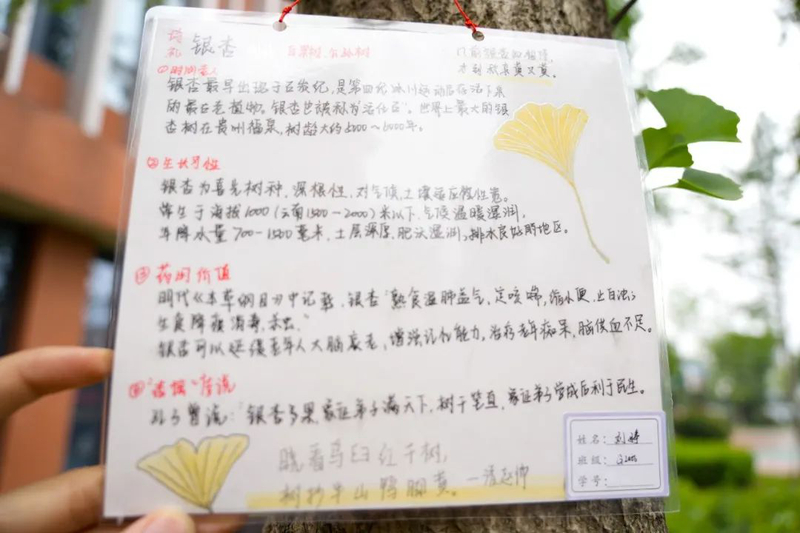 银杏
百果树、公孙树
①时间老人
银杏最早出现于石炭纪，是第四纪冰川运动后活下来
的最古老植物，银杏也被称为“活化石”。世界上最大的银
杏树在贵州福泉，树龄大约5000～6000年。
②生长习性
银杏为喜光树种，深根性，对气候、土壤适应性宽。
常生于海拔1000（云南1500－2000）米以下，气候温暖湿润，
年降水量700－1500毫米，土层深厚、肥沃湿润、排水良好的地区。
③药用价值
明代《本草纲目》中记载，银杏“熟食温肺益气，定咳喘，缩小便，止白浊；
生食降痰消毒，杀虫。”
银杏可以延缓老年人大脑衰老，增强记忆能力，治疗老年痴呆，脑供血不足。
孔子曾说：“银杏多果，象征弟子满天下，树干笔直，象征弟子
利于民生。
晓看乌臼红千树，
树抄半山鸭脚黄。
姓名：
班级：
学号：